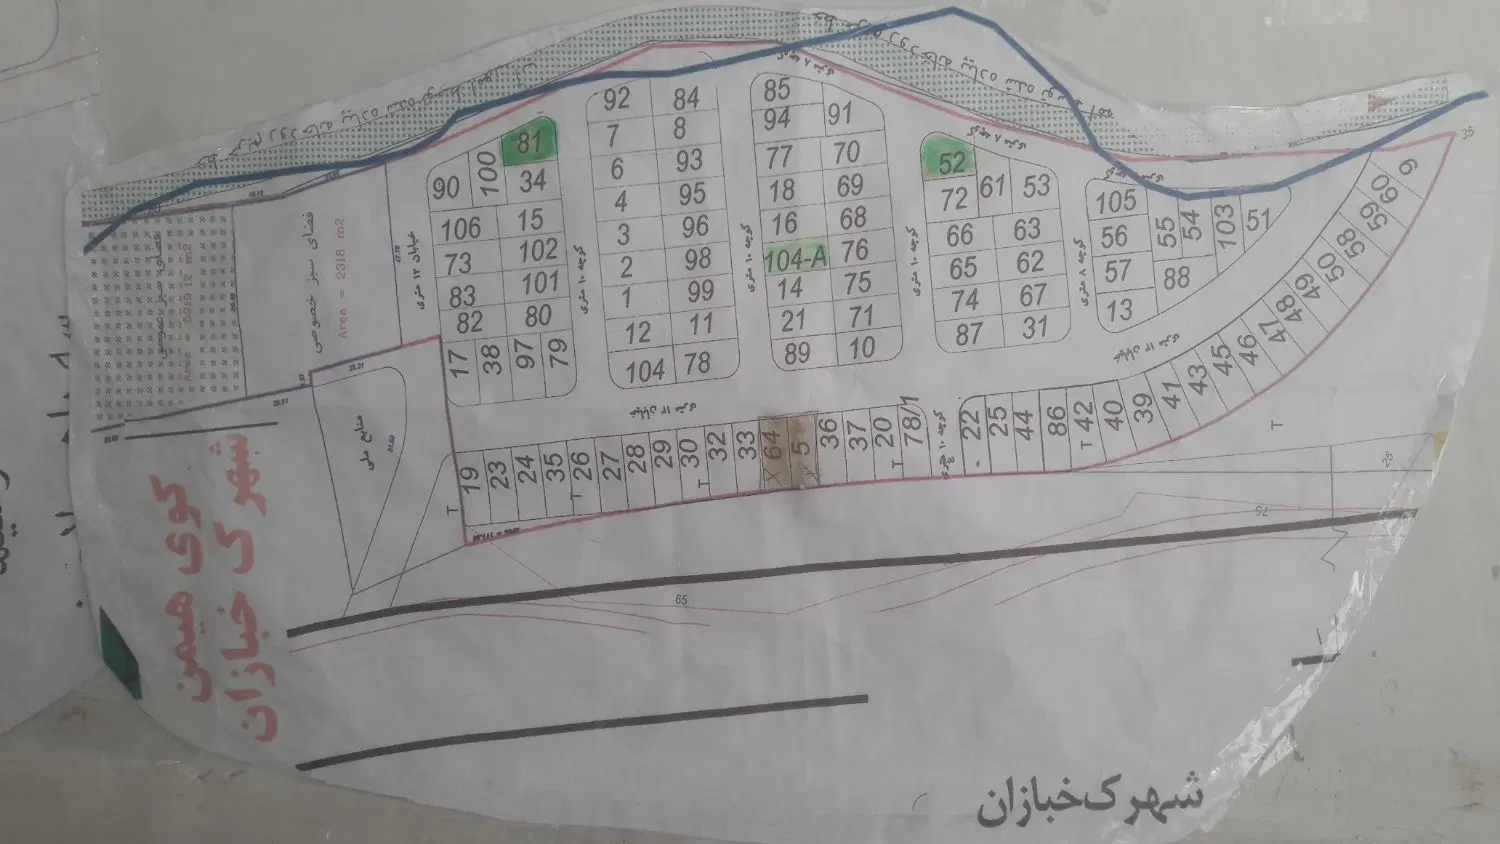 92 84
7 8
6 93
4 95
3 96
2 98
1 99
12 11
104 78
85
94 91
77 70
18 69
16 68
104-A 76
14 75
21 71
89 10
81
90 100 34
106 15
73 102
83 101
82 80
17 38 97 79
52
72 61 53
66 63
65 62
74 67
87 31
105
56 55 54 103 51
57 88
13
19 23 24 35 26 27 28 29 30 32 33 64 5 36 37 20 78/1
22 25 44 86 42 40 39 41 43 45 46 47 48 49 50 58 59 60 9
T T T T T T
35
25
75
65
خیابان ۱۲ متری
کوچه ۱۰ متری
کوچه ۱۰ متری
کوچه ۱۰ متری
کوچه ۸ متری
کوچه ۸ متری
کوچه ۸ متری
خیابان ۱۲ متری
فضای سبز خصوصی
Area = 2318 m2
منابع ملی
کوی هیمن
شهرک خبازان
شهرک خبازان